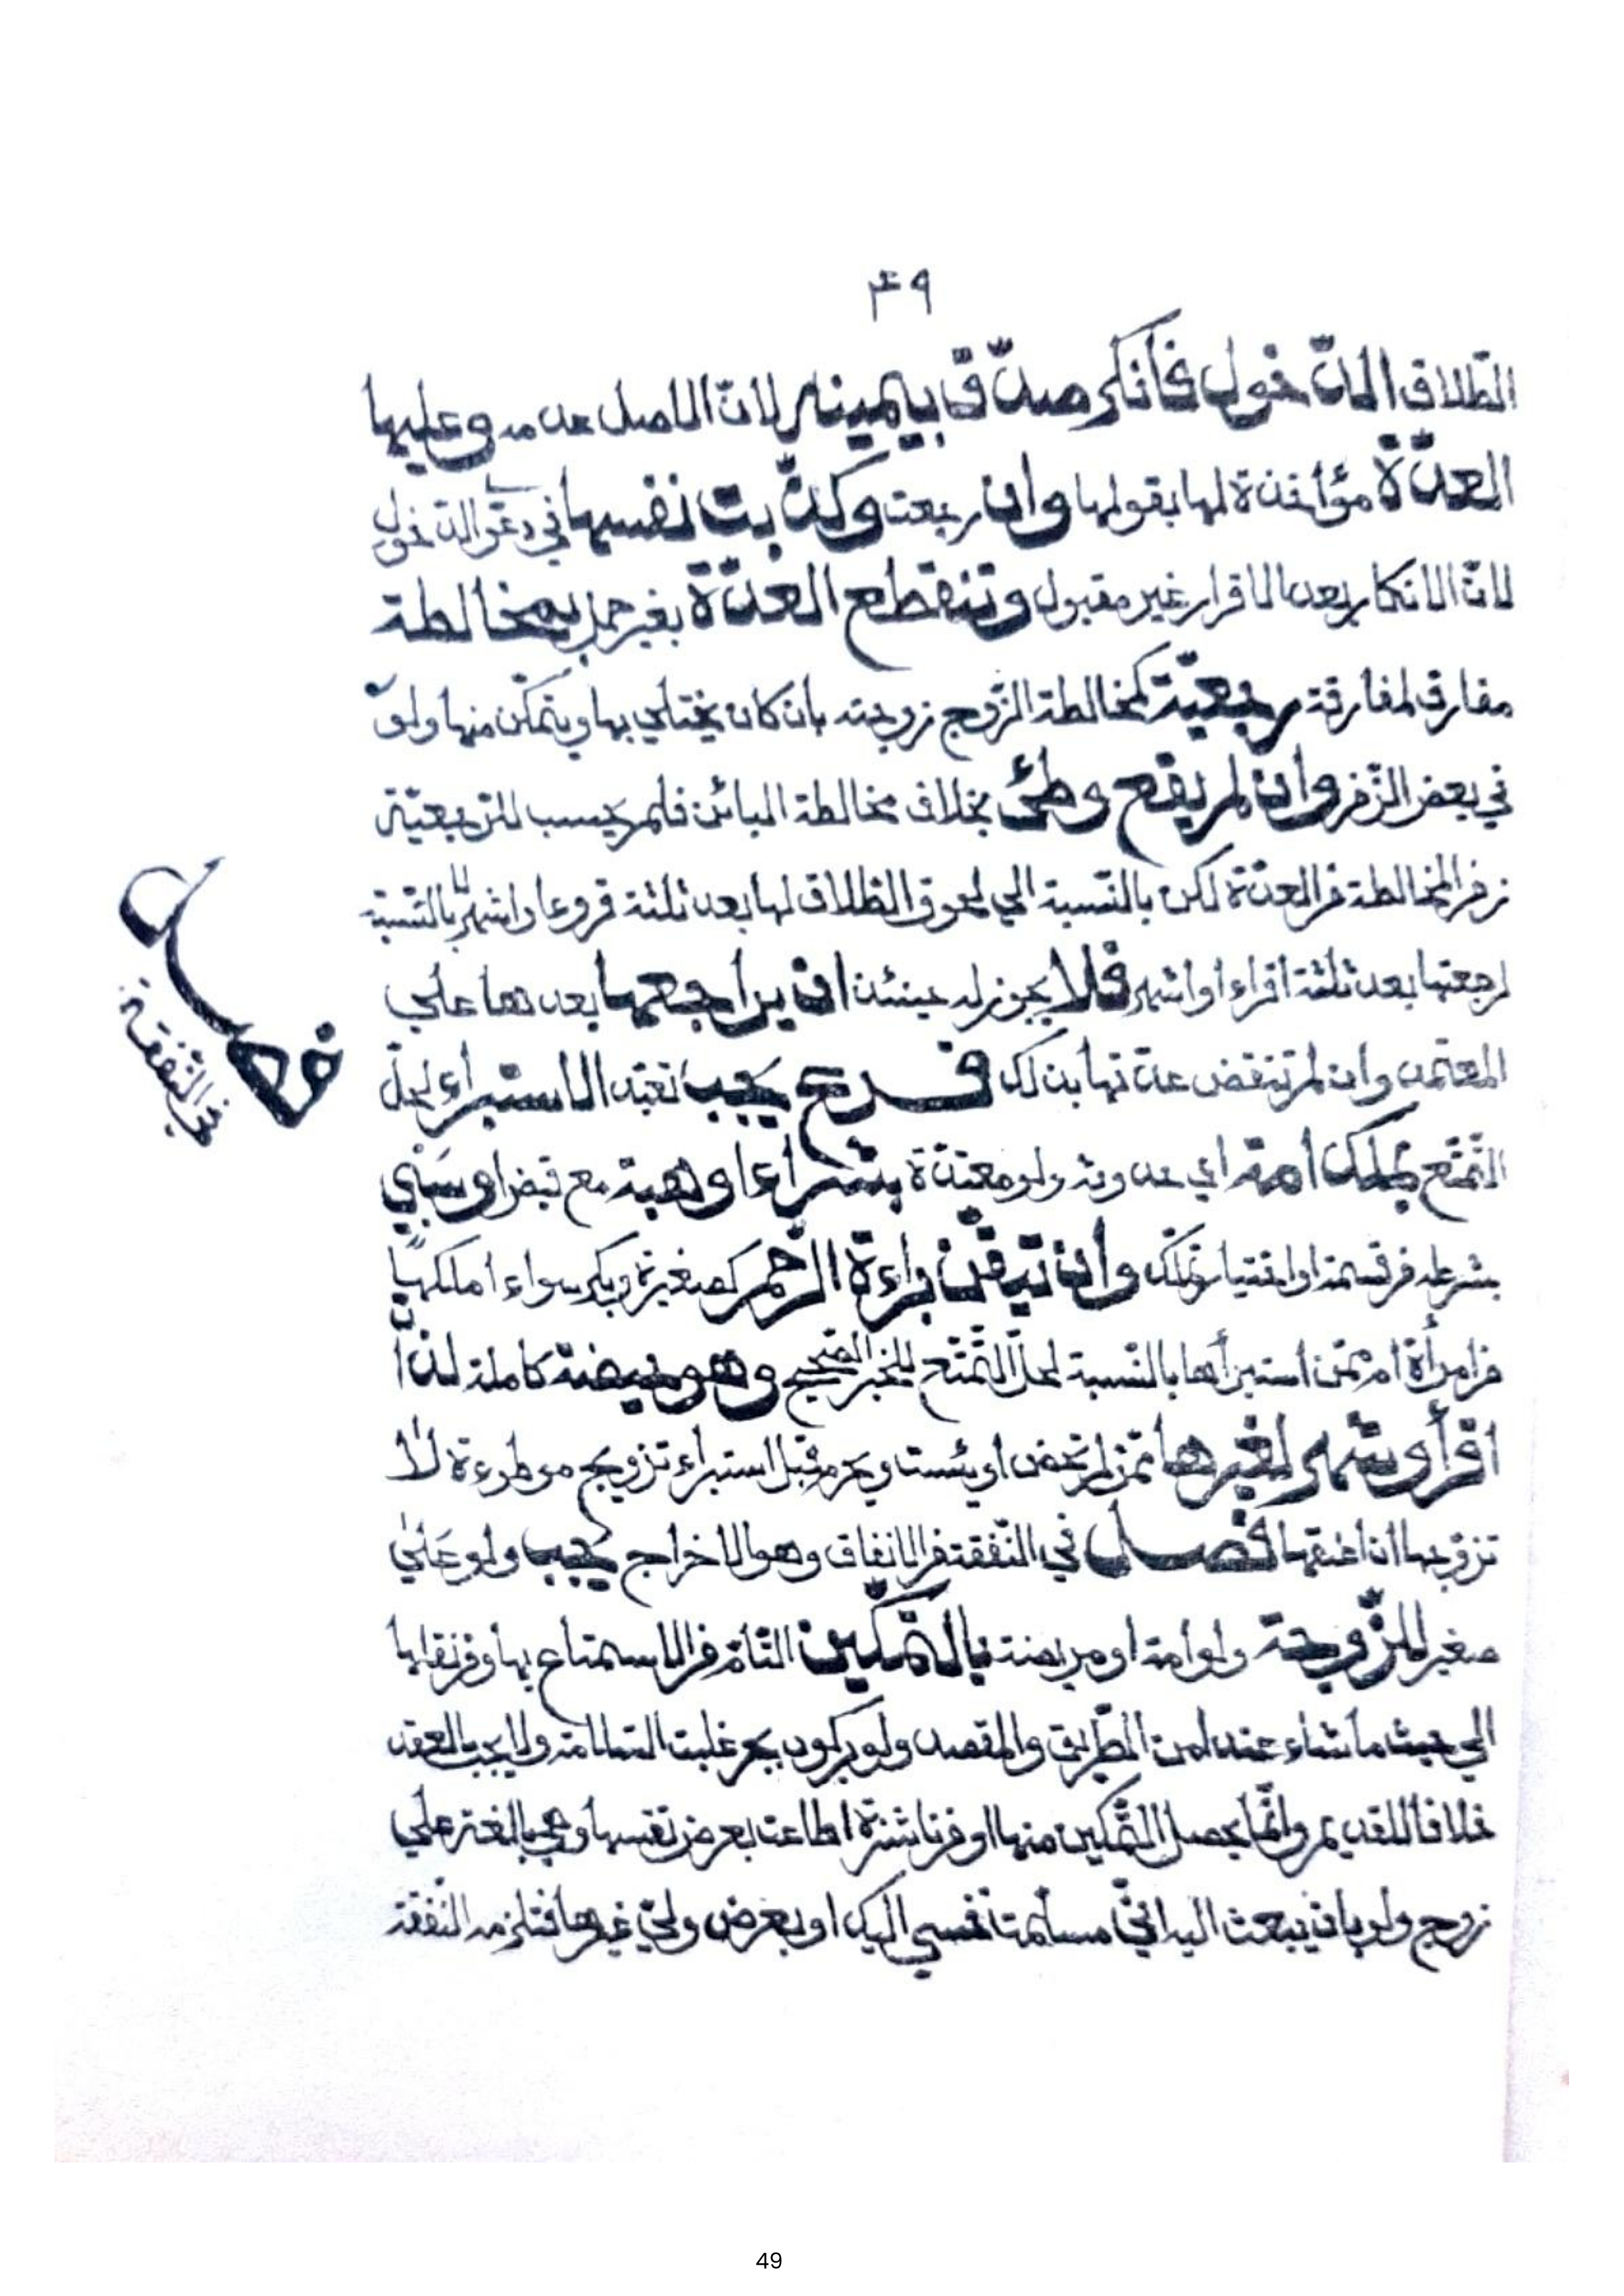 ٤٩
الطلاق الدّخول فأنكر صدّق بيمينه لانّ الاصل عدمه وعليها
العدّة مؤاخذة لها بقولها وان رجعت وكذّبت نفسها في دعوى الدّخول
لانّ الانكار بعد الاقرار غير مقبول وتنقطع العدّة بغير حمل بمخالطة
مفارق لمفارقة رجعيّة كمخالطة الزّوج زوجته بان كان يختلي بها ويتمكّن منها ولو
في بعض الزّمن وان لم يقع وطئ بخلاف مخالطة البائن فلم يحسب للرّجعيّة
زمن المخالطة من العدّة لكن بالنّسبة الي لحوق الطّلاق لها بعد ثلثة قروء او اشهر لا بالنّسبة
لرجعتها بعد ثلثة اقراء او اشهر فلا يجوز له حينئذ ان يراجعها بعدها علي
المعتمد وان لم تنقض عدّتها بذلك فرع يجب تعبّد الاستبراء لحلّ
التّمتّع بملك امة اي حدوثه ولو معتدّة بشراء او هبة مع قبض او سبي
بشرطه من قسمة او اختيار تملّك وان تيقّن براءة الرّحم كصغيرة وبكر سواء املكها
من امرأة ام ممّن استبرأها بالنّسبة لحلّ التّمتّع للخبر الصّحيح وهو حيضة كاملة لذات
اقرأ وشهر لغيرها ممّن لم تحض او يئست ويحرم قبل استبراء تزويج موطوءة لا
تزوّجها ان اعتقها فصل في النّفقة من الانفاق وهو الاخراج يجب ولو علي
صغير لزّوجة ولو امة او مريضة بالتّمكين التّامّ من الاستمتاع بها ومن نقلها
الي حيث ما شاء عند امن الطّريق والمقصد ولو بركوب بحر غلبت السّلامة ولا يجب بالعقد
خلافا للقديم وانّما يحصل التّمكين منها او من ناشزة اطاعت بعرض نفسها وهي بالغة علي
زوج ولو بان يبعث اليه انّي مسلّمة نفسي اليك او بعرض وليّ غيرها فتلزمه النّفقة
فصل
في النّفقة
49